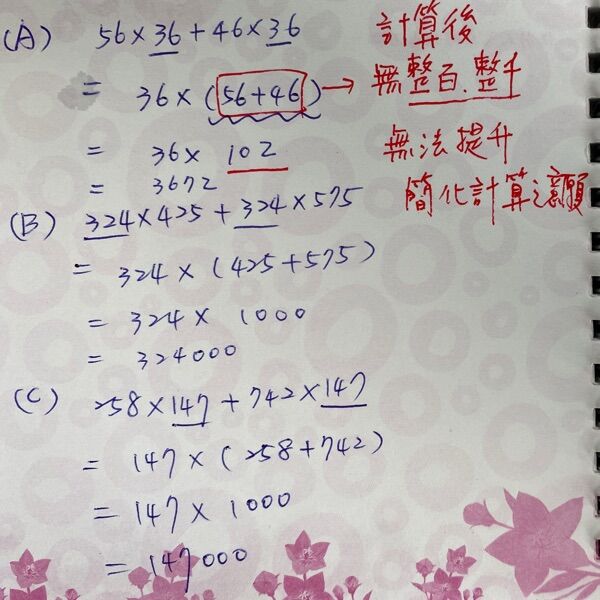 (A) 56×36+46×36 計算後
= 36×(56+46) → 無整百.整千
= 36×102 無法提升
= 3672 簡化計算之意願
(B) 324×425+324×575
= 324×(425+575)
= 324×1000
= 324000
(C) 258×147+742×147
= 147×(258+742)
= 147×1000
= 147000